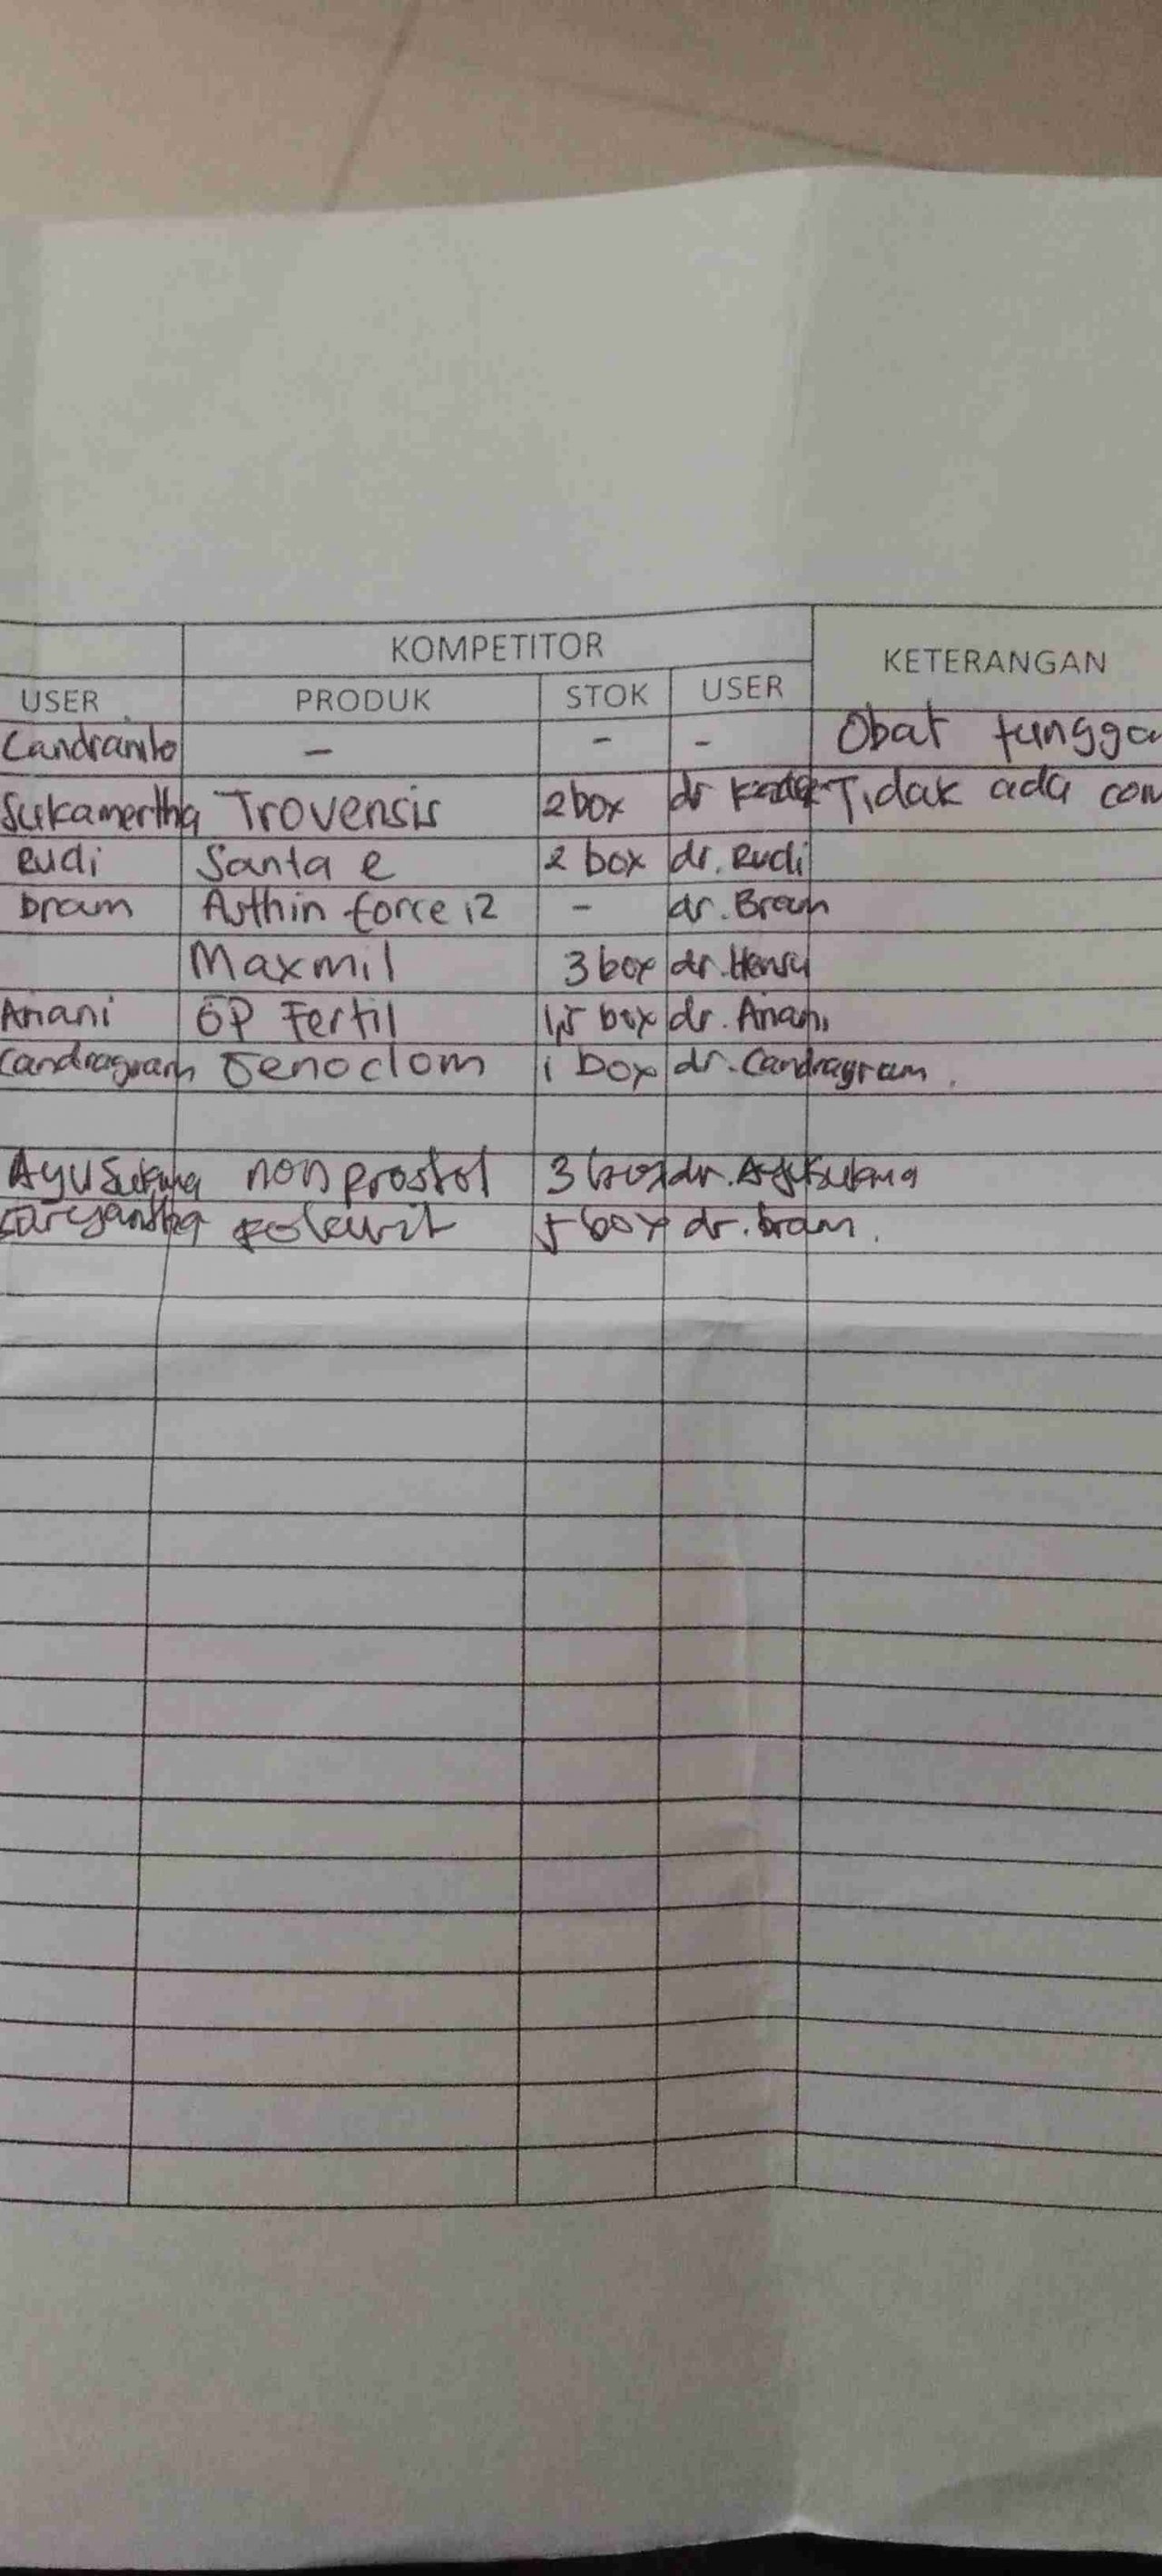 KOMPETITOR KETERANGAN
USER PRODUK STOK USER
Candranito - - - Obat tungga
Sukamertha Trovensis 2 box dr Tidak ada com
Rudi Santa e 2 box dr. Rudi
bram Asthin force 12 - dr. Bram
Maxmil 3 box dr. Henry
Ariani OP Fertil 1,5 box dr. Ariani
Candragram Genoclom 1 box dr. Candragram.
Ayu Sukma nonprostol 3 box dr. Ayu Sukma
5 box dr. bram.